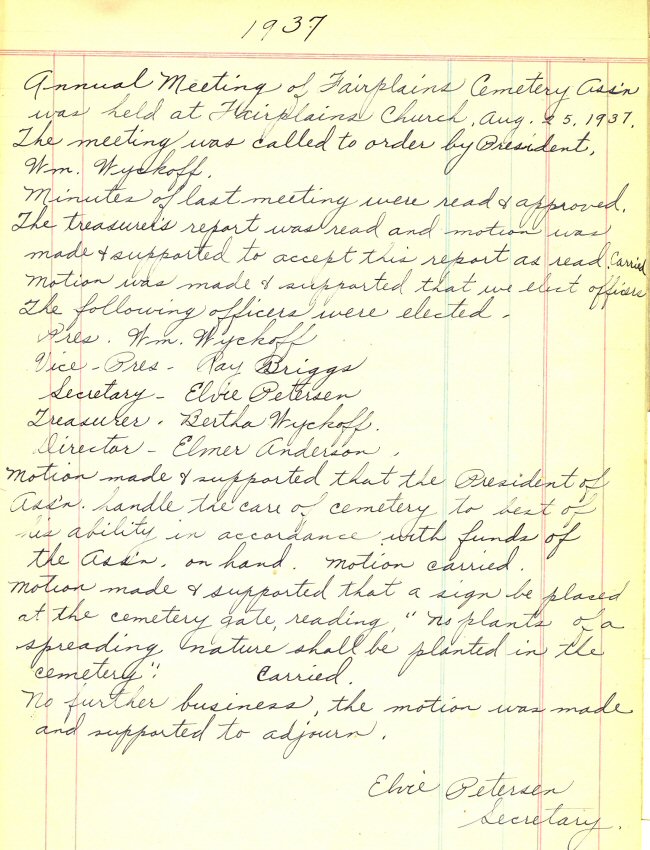 1937
Annual Meeting of Fairplains Cemetery Ass'n
was held at Fairplains Church, Aug. 25, 1937.
The meeting was called to order by President,
Wm. Wyckoff.
Minutes of last meeting were read & approved.
The treasurer's report was read and motion was
made & supported to accept this report as read. Carried
Motion was made & supported that we elect officers
The following officers were elected.
Pres. Wm. Wyckoff
Vice-Pres - Ray Briggs
Secretary - Elvie Petersen
Treasurer. Bertha Wyckoff.
Director - Elmer Anderson.
Motion made & supported that the President of
Ass'n. handle the care of cemetery to best of
his ability in accordance with funds of
the Ass'n. on hand. Motion carried.
Motion made & supported that a sign be placed
at the cemetery gate, reading, "No plants of a
spreading nature shall be planted in the
cemetery". Carried.
No further business, the motion was made
and supported to adjourn.
Elvie Petersen
Secretary.